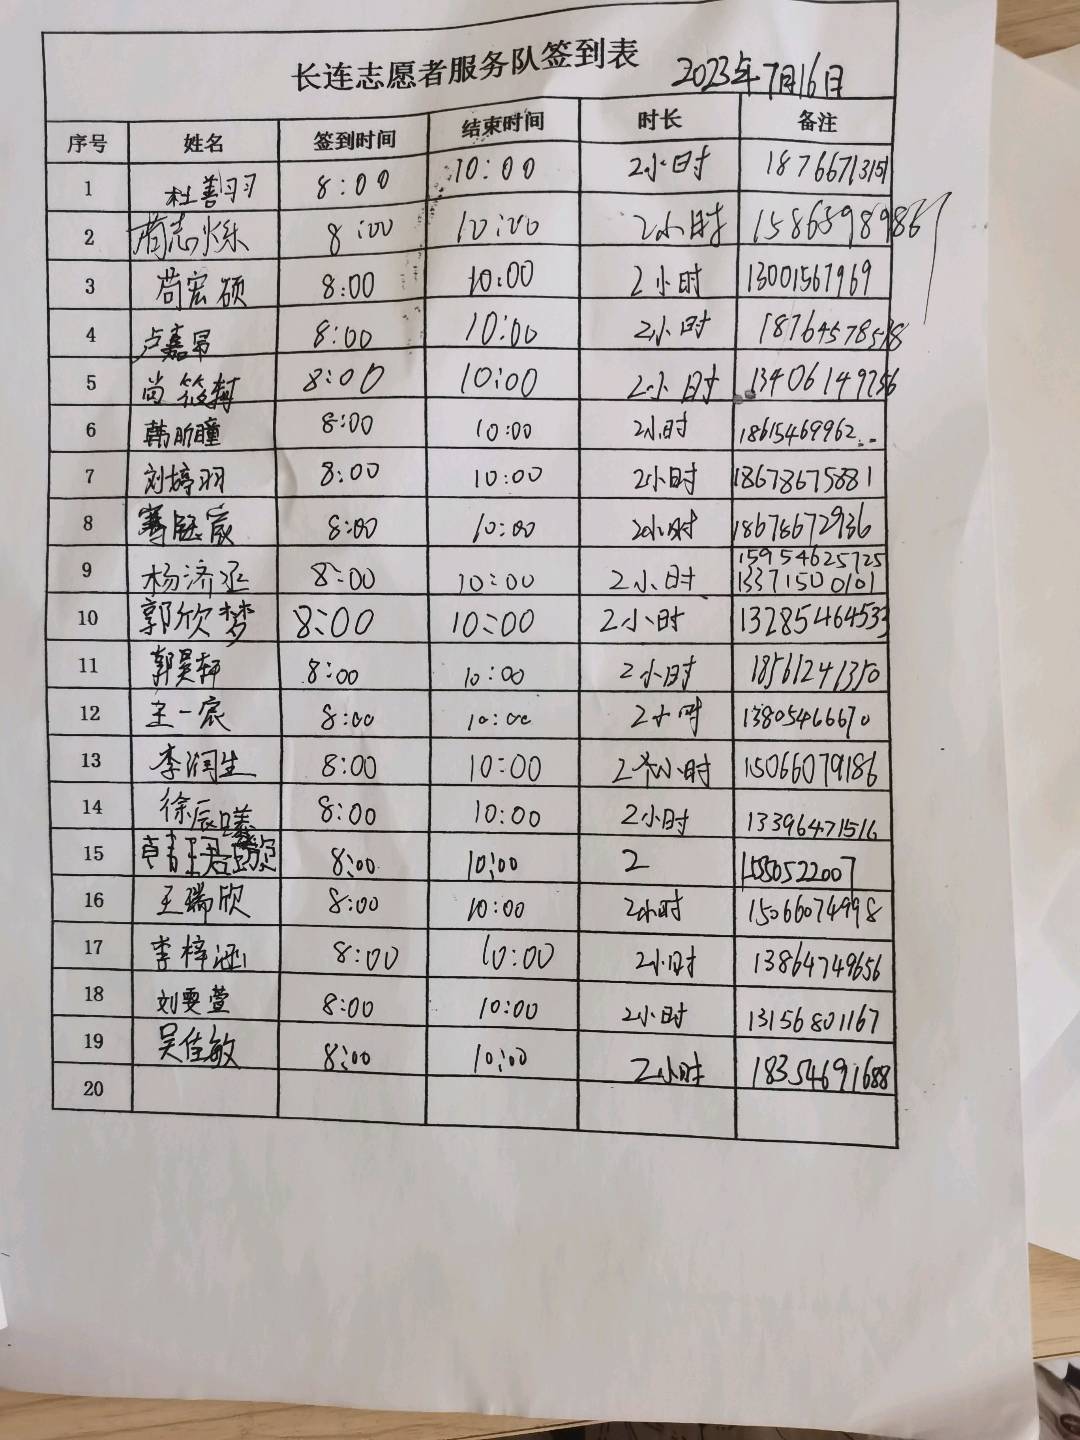 长连志愿者服务队签到表 2023年7月16日
序号 姓名 签到时间 结束时间 时长 备注
1 杜善习习 8:00 10:00 2小时 18766713151
2 尚志烁 8:00 10:00 2小时
3 苘宏硕 8:00 10:00 2小时 13001567969
4 卢嘉昂 8:00 10:00 2小时 18764578518
5 尚筱 8:00 10:00 2小时 13406149756
6 韩昕瞳 8:00 10:00 2小时 18615469962
7 刘婷羽 8:00 10:00 2小时 18678675881
8 8:00 10:00 2小时 18678672936
9 杨济丞 8:00 10:00 2小时 15954625725
13371500101
10 郭欣梦 8:00 10:00 2小时 13285464533
11 郭昊轩 8:00 10:00 2小时 18561241350
12 王一宸 8:00 10:00 2小时 13805466670
13 李润生 8:00 10:00 2小时 15066079186
14 徐辰曦 8:00 10:00 2小时 13396471516
15 8:00 10:00 2
16 王瑞欣 8:00 10:00 2小时 15066074998
17 李梓涵 8:00 10:00 2小时 13864749656
18 刘雯萱 8:00 10:00 2小时 13156801167
19 吴佳敏 8:00 10:00 2小时 18354691688
20